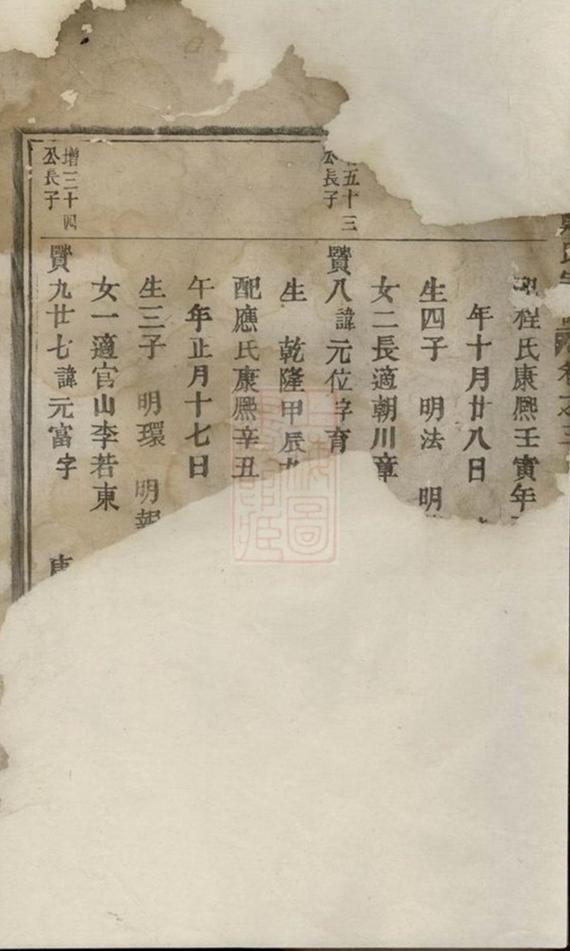 氏
卷之三
程氏康熙壬寅年
年十月廿八日
生四子 明法 明
女二長適朝川章
五十三
公長子
賢八諱元位字育
生 乾隆甲辰
配應氏康熙辛丑
午年正月十七日
生三子 明環 明報
女一適官山李若東
增三十四
公長子
賢九廿七諱元富字